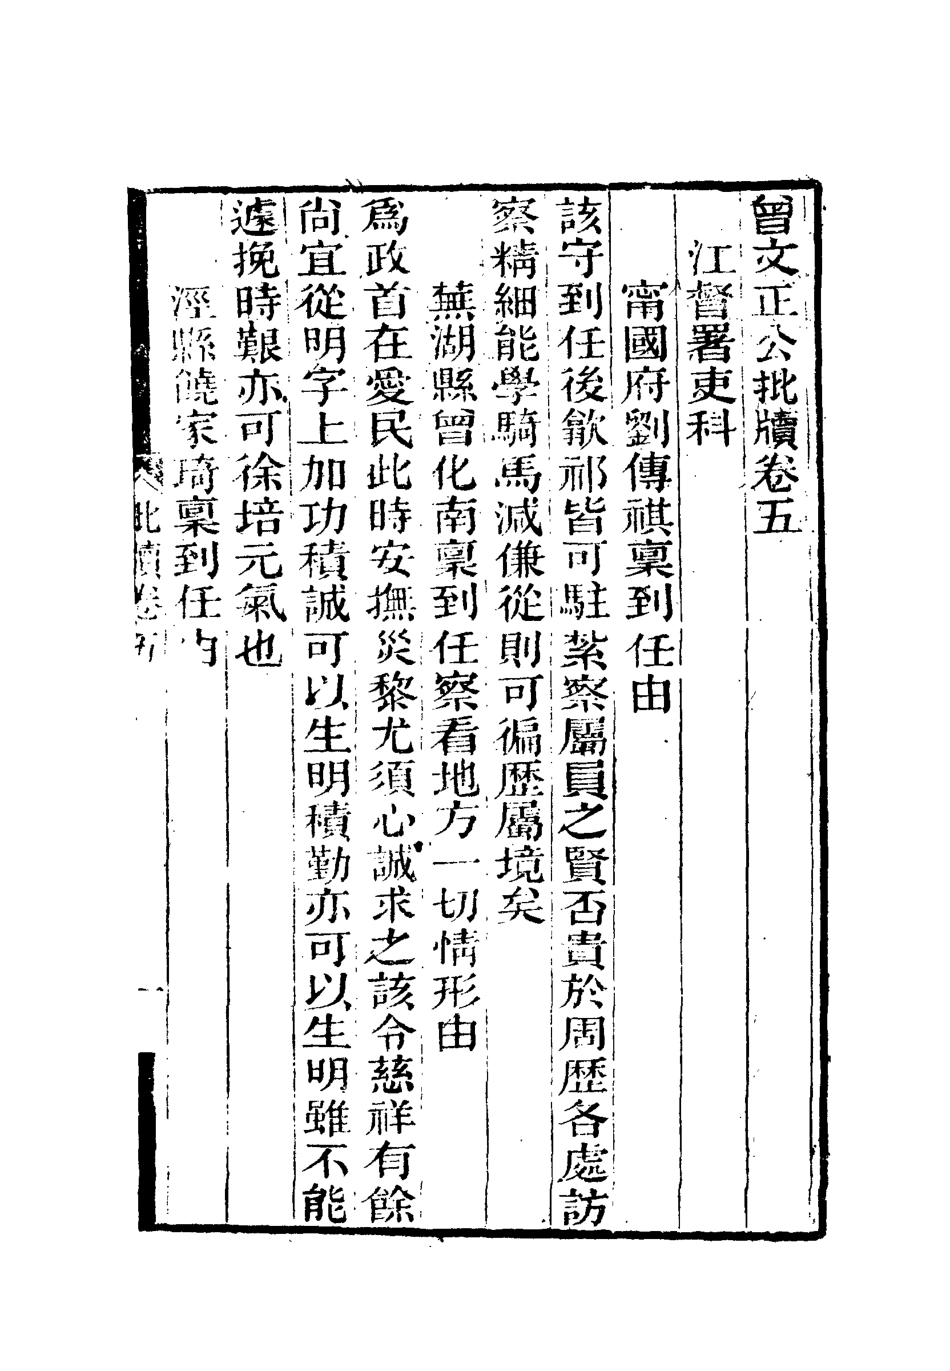 曾文正公批牘卷五
江督署吏科
甯國府劉傳祺稟到任由
該守到任後歙祁皆可駐紮察屬員之賢否貴於周歷各處訪
察精細能學騎馬減傔從則可徧歷屬境矣
蕪湖縣曾化南稟到任察看地方一切情形由
爲政首在愛民此時安撫災黎尤須心誠求之該令慈祥有餘
尙宜從明字上加功積誠可以生明積勤亦可以生明雖不能
遽挽時艱亦可徐培元氣也
涇縣饒家琦稟到任由
批牘卷五
一